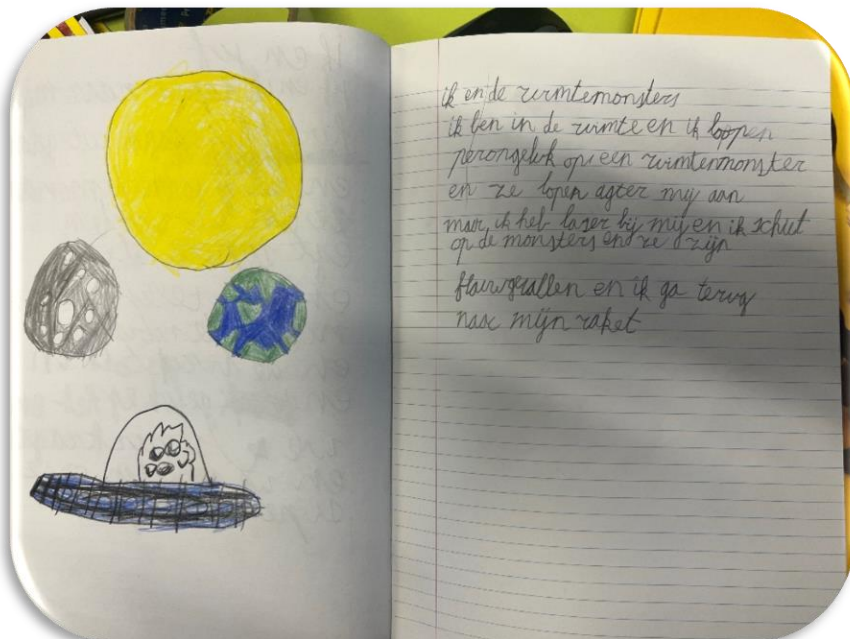 ik en de ruimtemonsters
ik ben in de ruimte en ik loppen
perongeluk op een ruimtenmonster
en ze lopen agter mij aan
maar ik heb laser bij mij en ik schiet
op de monsters en ze zijn
flauwgevallen en ik ga terug
naar mijn raket